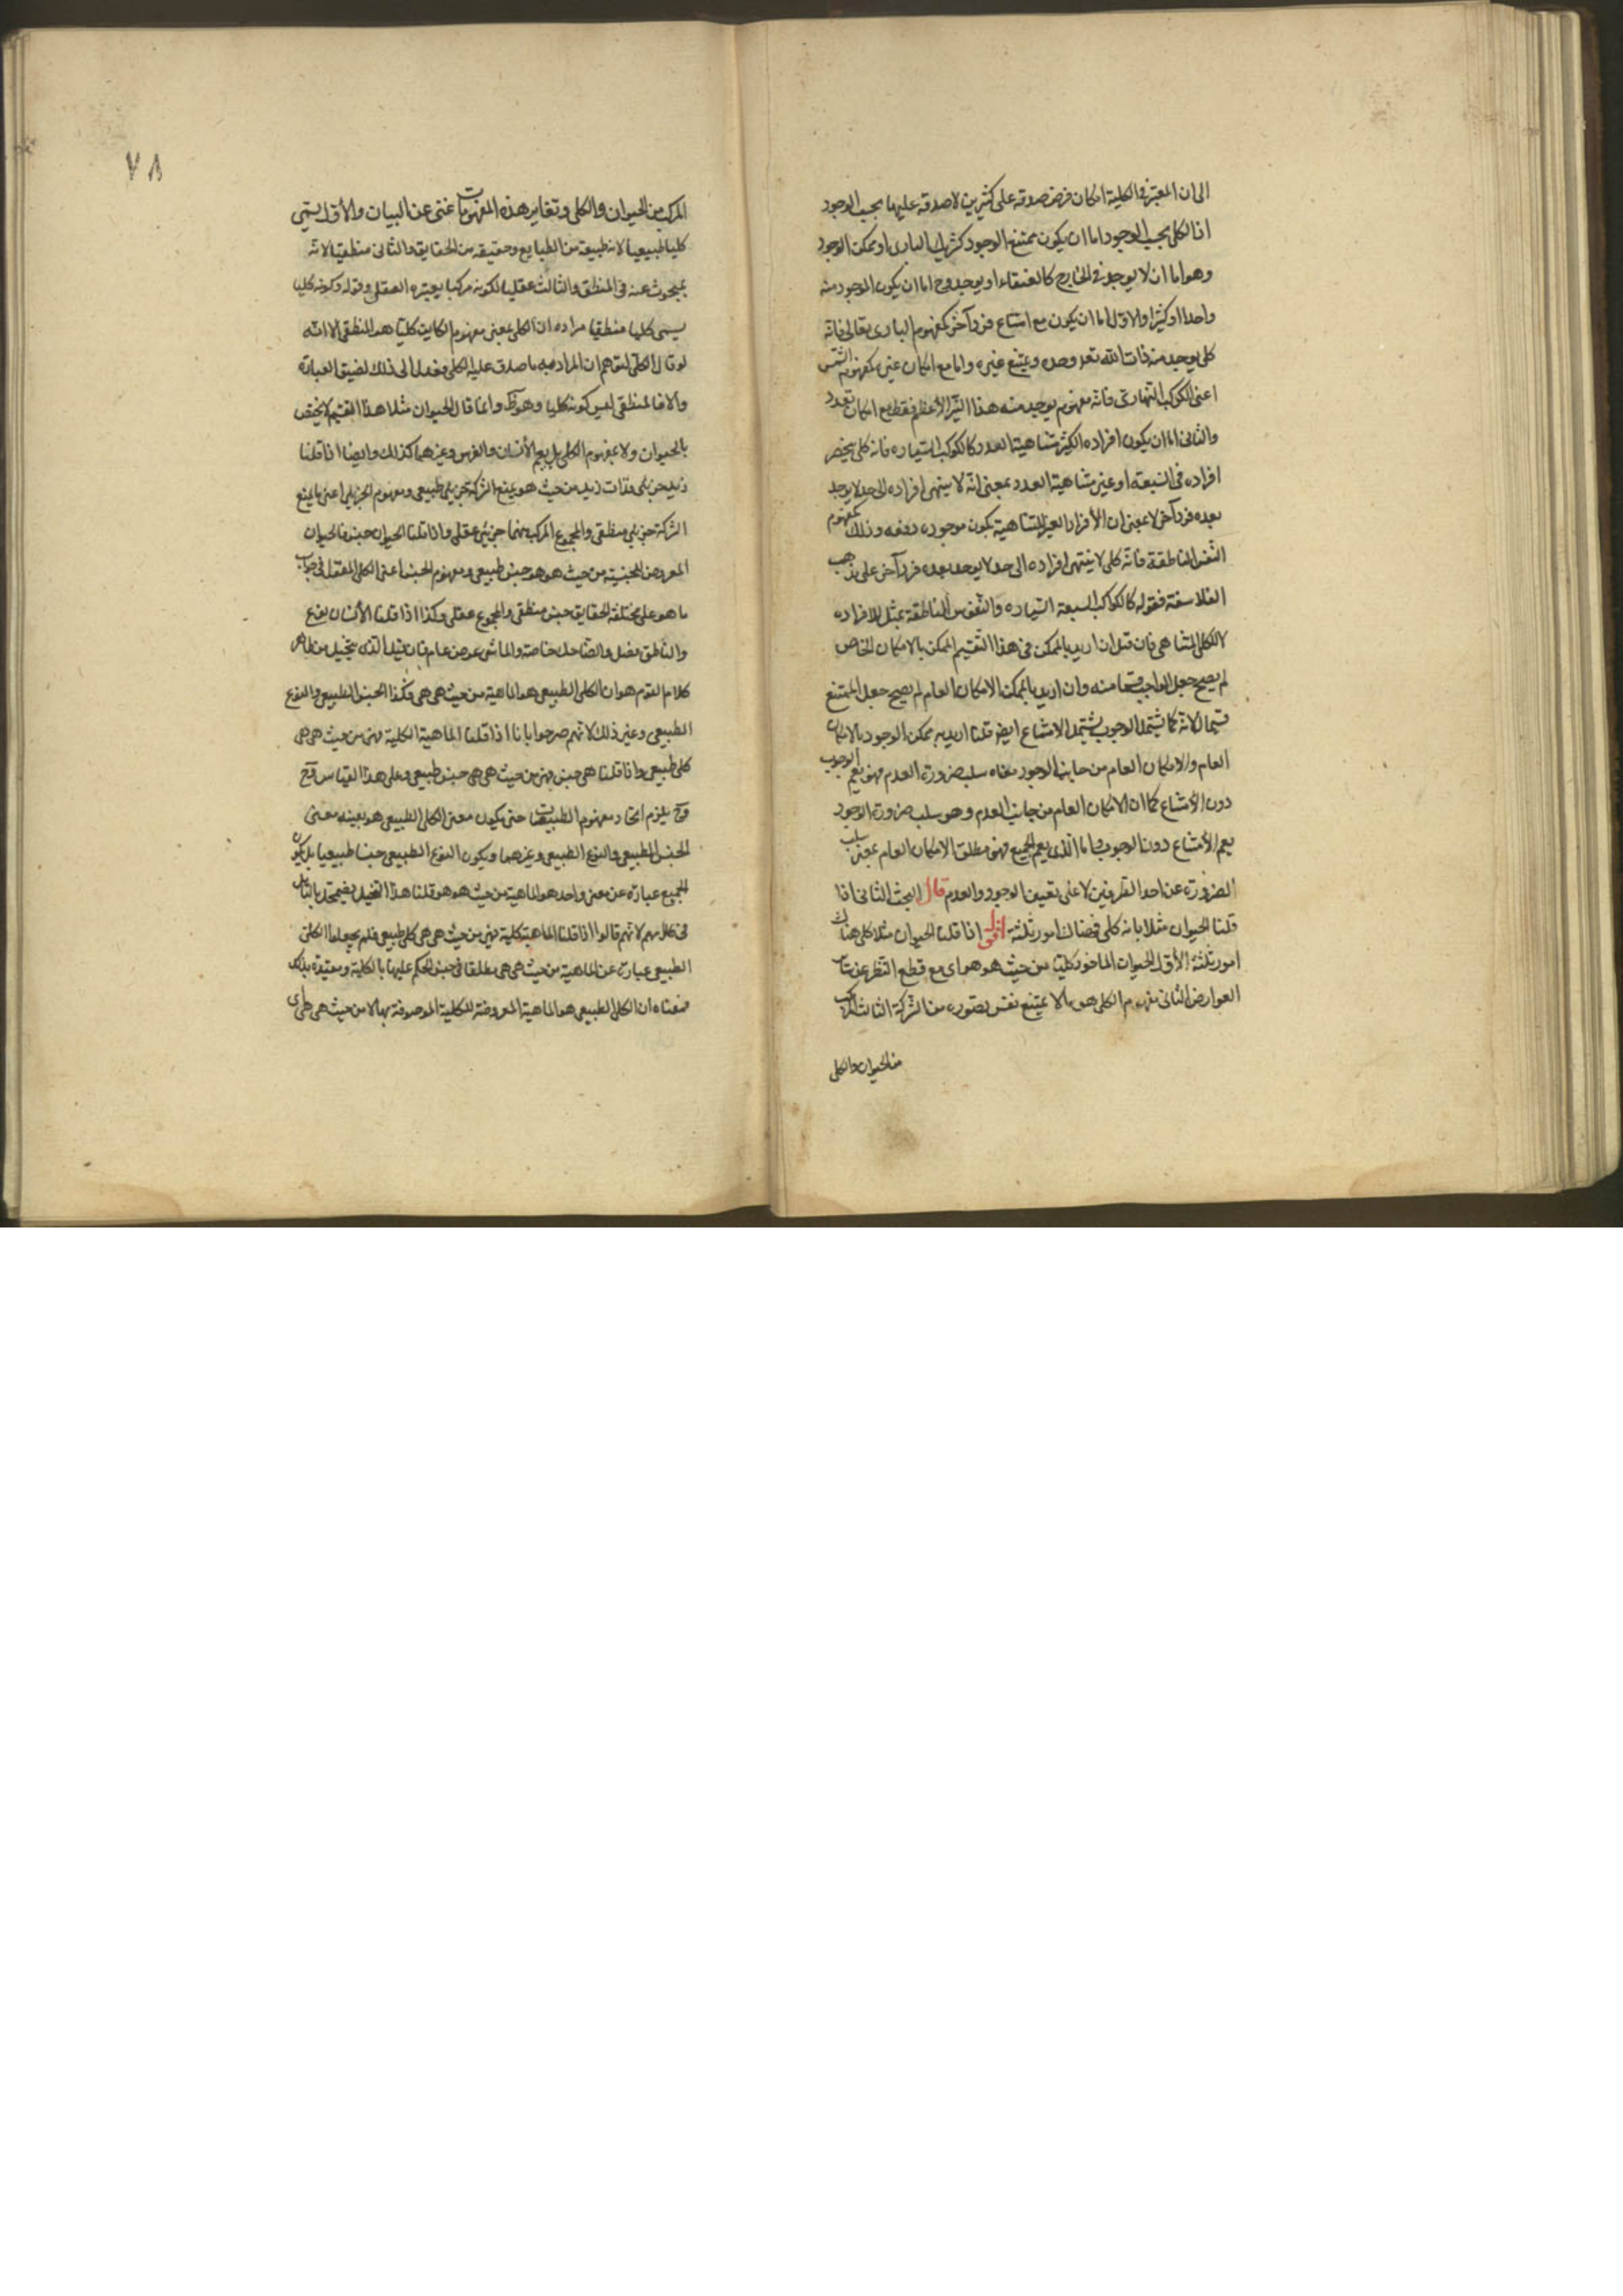 الى ان المعتبر فى الكلية امكان فرض صدقه على كثيرين لا صدقه عليها بحسب الوجود
اذ الكلى بحسب الوجود اما ان يكون ممتنع الوجود كشريك البارى او ممكن الوجود
وهو اما ان لا يوجد فى الخارج كالعنقاء او يوجد وح اما ان يكون الموجود منه
واحدا او كثيرا والاول اما ان يكون مع امتناع فرد آخر كمفهوم البارى تعالى فانه
كلى يوجد منه ذات الله تعه وحده ويمتنع غيره واما مع امكان غيره كمفهوم الشمس
اعنى الكوكب النهارى فانه مفهوم يوجد منه هذا النير الأعظم فقط مع امكان تعدد
والثانى اما ان يكون افراده الكثير متناهية العدد كالكوكب السياره فانه كلى ينحصر
افراده فى السبعة او غير متناهية العدد بمعنى انه لا ينتهى افراده الى حد لا يوجد
بعده فرد آخر لا بمعنى ان الأفراد الغير المتناهية يكون موجوده دفعه وذلك كمفهوم
النفس الناطقة فانه كلى لا ينتهى افراده الى حد لا يوجد بعده فرد آخر على مذهب
الفلاسفة فقوله كالكواكب السبعة السياره والنفوس الناطقة تمثيل للافراده
لا للكلى المتناهى فان قيل ان اريد بالممكن فى هذا التقسيم الممكن بالامكان الخاص
لم يصح جعل الواجب قسما منه وان اريد بالممكن الامكان العام لم يصح جعل الممتنع
قسيما لانه كما يشتمل الوجوب يشتمل الامتناع ايض قلنا اريد به ممكن الوجود بالامكان
العام والامكان العام من جانب الوجود معناه سلب ضرورة العدم فهو يعم الوجوب
دون الأمتناع كما ان الامكان العام من جانب العدم وهو سلب ضرورة الوجود
يعم الأمتناع دون الوجوب واما الذى يعم الجميع فهو مطلق الامكان العام بمعنى سلب
الضرورة عن احد الطرفين لا على تعيين الوجود والعدم قال البحث الثانى اذا
قلنا الحيوان مثلا بانه كلى فهناك امور ثلثة اقول اذا قلنا الحيوان مثلا كلى هناك
امور ثلثة الأول الحيوان الماخوذ كليا من حيث هو هو اى مع قطع النظر عن
العوارض الثانى مفهوم الكلى هو ما لا يمتنع نفس تصوره من الشركة الثالث المركب
من الحيوان والكلى
٧٨
المركب من الحيوان والكلى وتغاير هذه المفهومات غنى عن البيان والأول يسمى
كليا طبيعيا لانه طبيعة من الطبايع وحقيقه من الحقايق والثانى منطقيا لانه
يبحوث عنه فى المنطق والثالث عقليا لكونه مركبا يعتبره العقل وقوله وكونه كليا
يسمى كليا منطقيا مراده ان الكلى بمعنى مفهوم الكلية كليا هو المنطقى الا انه
لو قال الكلى لتوهم ان المراد به ما صدق عليه الكلى فعدل الى ذلك لضيق العبارة
والا فالمنطقى ليس كونه كليا وهو ظ وانما قال الحيوان مثلا لان هذا التقسيم لا يختص
بالحيوان ولا بمفهوم الكلى بل يعم الأنسان والفرس وغيرهما كذلك وايضا اذا قلنا
زيد جزئى فذات زيد من حيث هو يمنع الشركة جزئى طبيعى ومفهوم الجزئى اعنى ما يمنع
الشركة جزئى منطقى والمجموع المركب منهما جزئى عقلى واذا قلنا الحيوان جنس فالحيوان
المعروض للجنسية من حيث هو هو جنس طبيعى ومفهوم الجنس اعنى الكلى المقول فى جواب
ما هو على مختلفة الحقايق جنس منطقى والمجموع عقلى وكذا اذا قلنا الأنسان نوع
والناطق فصل والضاحك خاصة والماشى عرض عام فان قيل الذى يتخيل من ظاهر
كلام القوم هو ان الكلى الطبيعى هو الماهية من حيث هى هى وكذا الجنس الطبيعى والنوع
الطبيعى وغير ذلك لانهم صرحوا بانا اذا قلنا الماهية الكلية فهى من حيث هى هى
كلى طبيعى واذا قلنا هى جنس فهى من حيث هى هى جنس طبيعى وعلى هذا القياس وح
وح يلزم اتحاد مفهوم الطبيعيات حتى يكون معنى الكلى الطبيعى هو بعينه معنى
الجنس الطبيعى والنوع الطبيعى وغيرهما ويكون النوع الطبيعى جنسا طبيعيا بل يكون
الجميع عبارة عن معنى واحد هو الماهية من حيث هو هو قلنا هذا التخيل يضمحل بالتامل
فى كلامهم لانهم قالوا اذا قلنا الماهية كلية فهى من حيث هى هى كلى طبيعى فلم يجعلوا الكلى
الطبيعى عبارة عن الماهية من حيث هى هى مطلقا فى حيز الحكم عليها بالكلية ومقيدة بذلك
فمعناه ان الكلى الطبيعى هو الماهية المعروضة للكلية الموصوفة بها لا من حيث هى